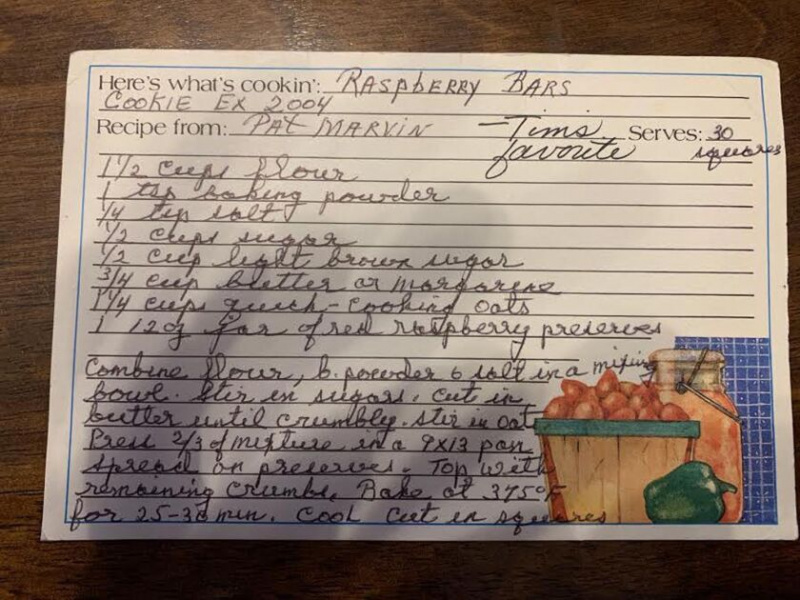 Here's what's cookin': RASPBERRY BARS
COOKIE EX 2004
Recipe from: PAT MARVIN - Tim's favorite Serves: 30 squares
1 1/2 cups flour
1 tsp baking powder
1/4 tsp salt
1/2 cups sugar
1/2 cup light brown sugar
3/4 cup butter or margarine
1 1/4 cups quick-cooking oats
1 12 oz jar of red raspberry preserves
Combine flour, b. powder & salt in a mixing
bowl. Stir in sugars. Cut in
butter until crumbly. Stir in oats
Press 2/3 of mixture in a 9x13 pan
Spread on preserves. Top with
remaining crumbs. Bake at 375°F
for 25-30 min. Cool Cut in squares